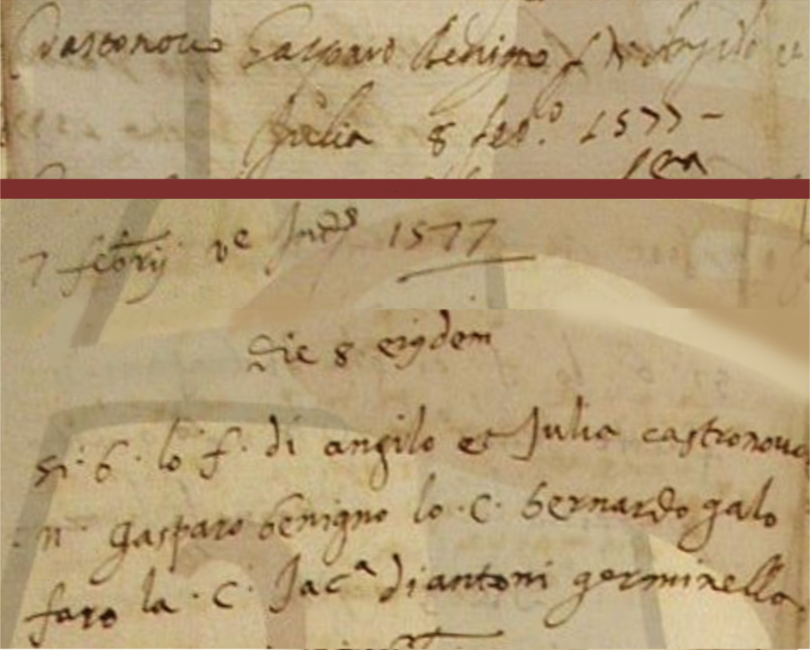 Castronovo Gasparo Benigno f. di Angilo et
Julia 8 feb.o 1577 -
7 febrij ve Indis 1577
Die 8 eiydem
Si. b. lo f. di angilo et Julia castronovo
n. gasparo benigno lo. C. bernardo galo
faro la. C. Jac.a di antoni germinello